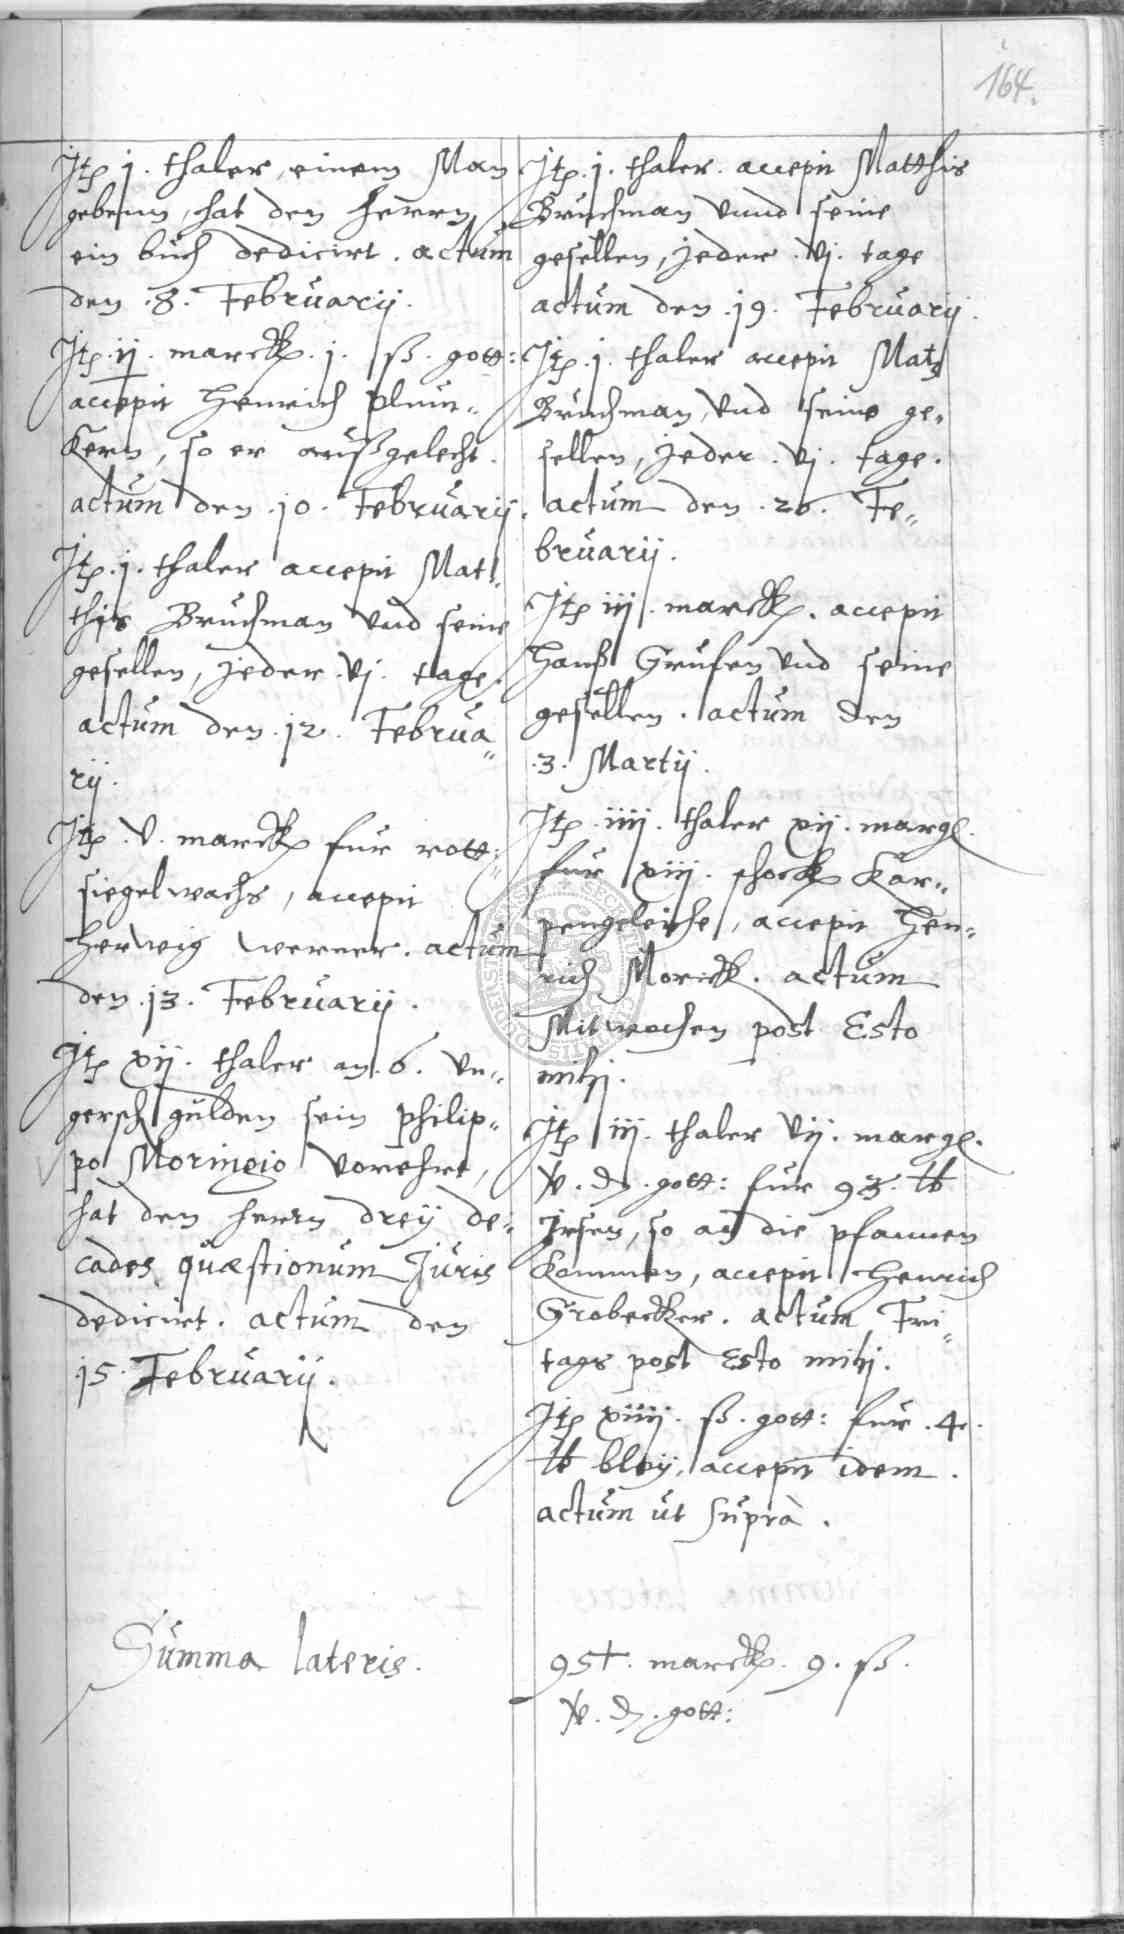 164.
Itp j. thaler, einem Man
gebenn, hat den herrn
ein buch dedicirt. actum
den .8. Februarij.
Itp .ij. marckk. j. ß. gott:
accepit Henrich Plum-
kern, so er außgelecht.
actum den .10. Februarij.
Itp .j. thaler accepit Mat-
this Bruchman vnd seine
gesellen, jeder .vj. tage.
actum den .12. Februa-
rij.
Itp .v. marckk fur rott-
siegelwachs, accepit
Herwig Werner. actum
den .13. Februarij.
Itp xij. thaler an .6. Vn-
gersch gulden sein Philip-
po Moringio vorehrt,
hat den herrn dreij de-
cades quæstionum Juris
dedicirt. actum den
15. Februarij.
Itp .j. thaler. accepit Matthis
Bruchman vnnd seine
gesellen, jeder .vj. tage
actum den .19. Februarij.
Itp .j. thaler accepit Mats
Bruchman, vnd seine ge-
sellen, jeder .vj. tage.
actum den .26. Fe-
bruarij.
Itp iij. marckk. accepit
Hanß Grufen vnd seine
gesellen. actum den
.3. Martij.
Itp .iiij. thaler xij. marg.
fur xiij. schockk Kar-
pengeleiche, accepit Hen-
rich Morickk. actum
Mitwochen post Esto
mihj.
Itp iij. thaler vij. marg.
gott: fur 93. lb
Irsen, so an die pfannen
kommen, accepit Henrich
Grobeckker. actum Fri-
tags post Esto mihj.
Itp xiiij. ß. gott: fur .4.
lb bleij, accepit idem.
actum ut suprà.
Summa lateris.
marckk. 9. ß.
gott: